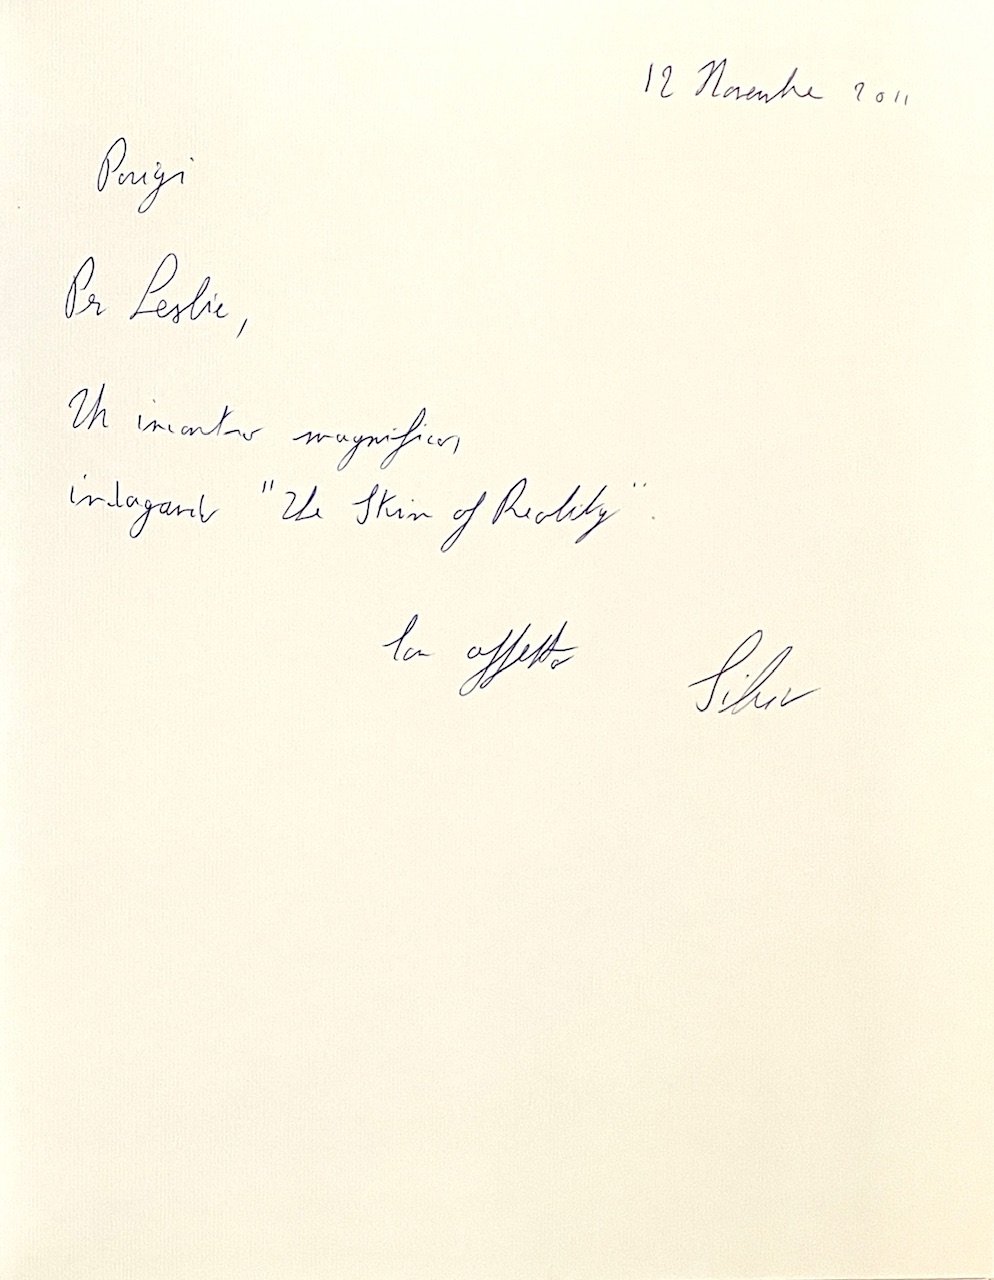 12 Novembre 2011
Parigi
Per Leslie,
Un incontro magnifico,
indagando "The Skin of Reality".
Con affetto